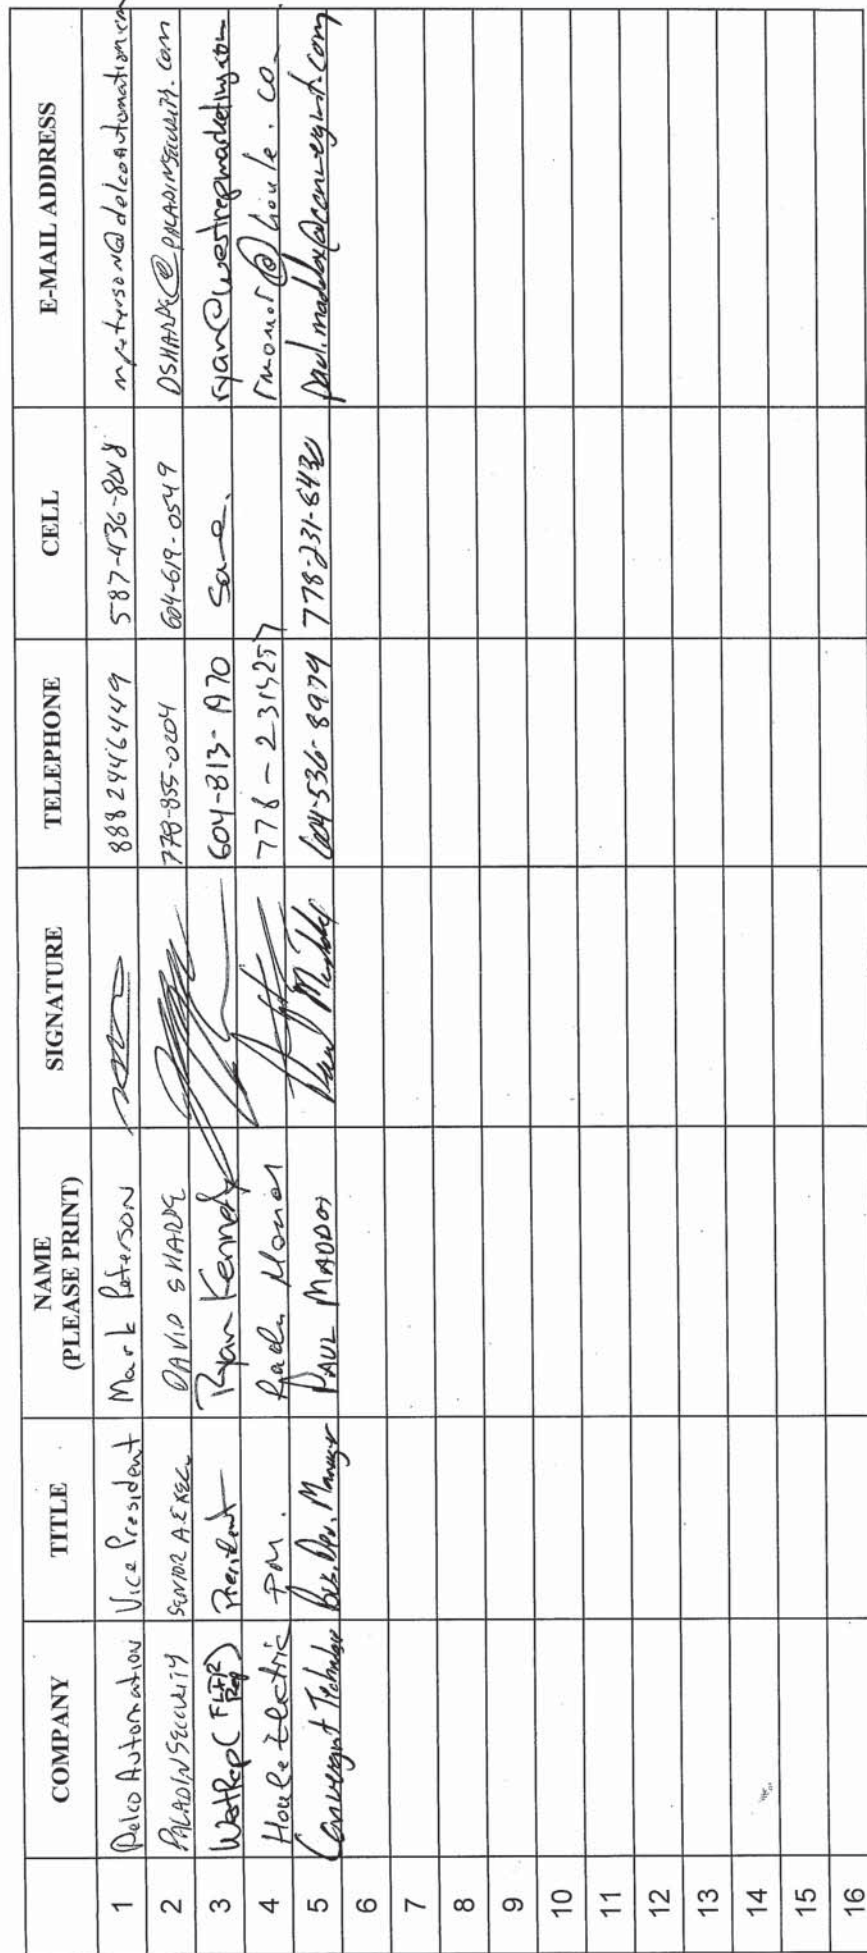 COMPANY TITLE NAME (PLEASE PRINT) SIGNATURE TELEPHONE CELL E-MAIL ADDRESS
1 Delco Automation Vice President Mark Peterson 888 2446449 587-436-8018 mpeterson@delcoautomation.com
2 PALADIN SECURITY SENIOR A.EXEC. DAVID SHARPE 778-855-0204 604-619-0549 DSHARPE@PALADINSECURITY.COM
3 WestRep (FLIR Rep) President Ryan Kennedy 604-813-1970 Same. ryan@westrepmarketing.com
4 Houle Electric PM. Radu Monor 778-2315257 rmonor@houle.ca
5 Convergint Bus. Dev. Manager PAUL MADDOX Paul Maddox 604-536-8979 778-231-6430 paul.maddox@convergint.com
6
7
8
9
10
11
12
13
14
15
16